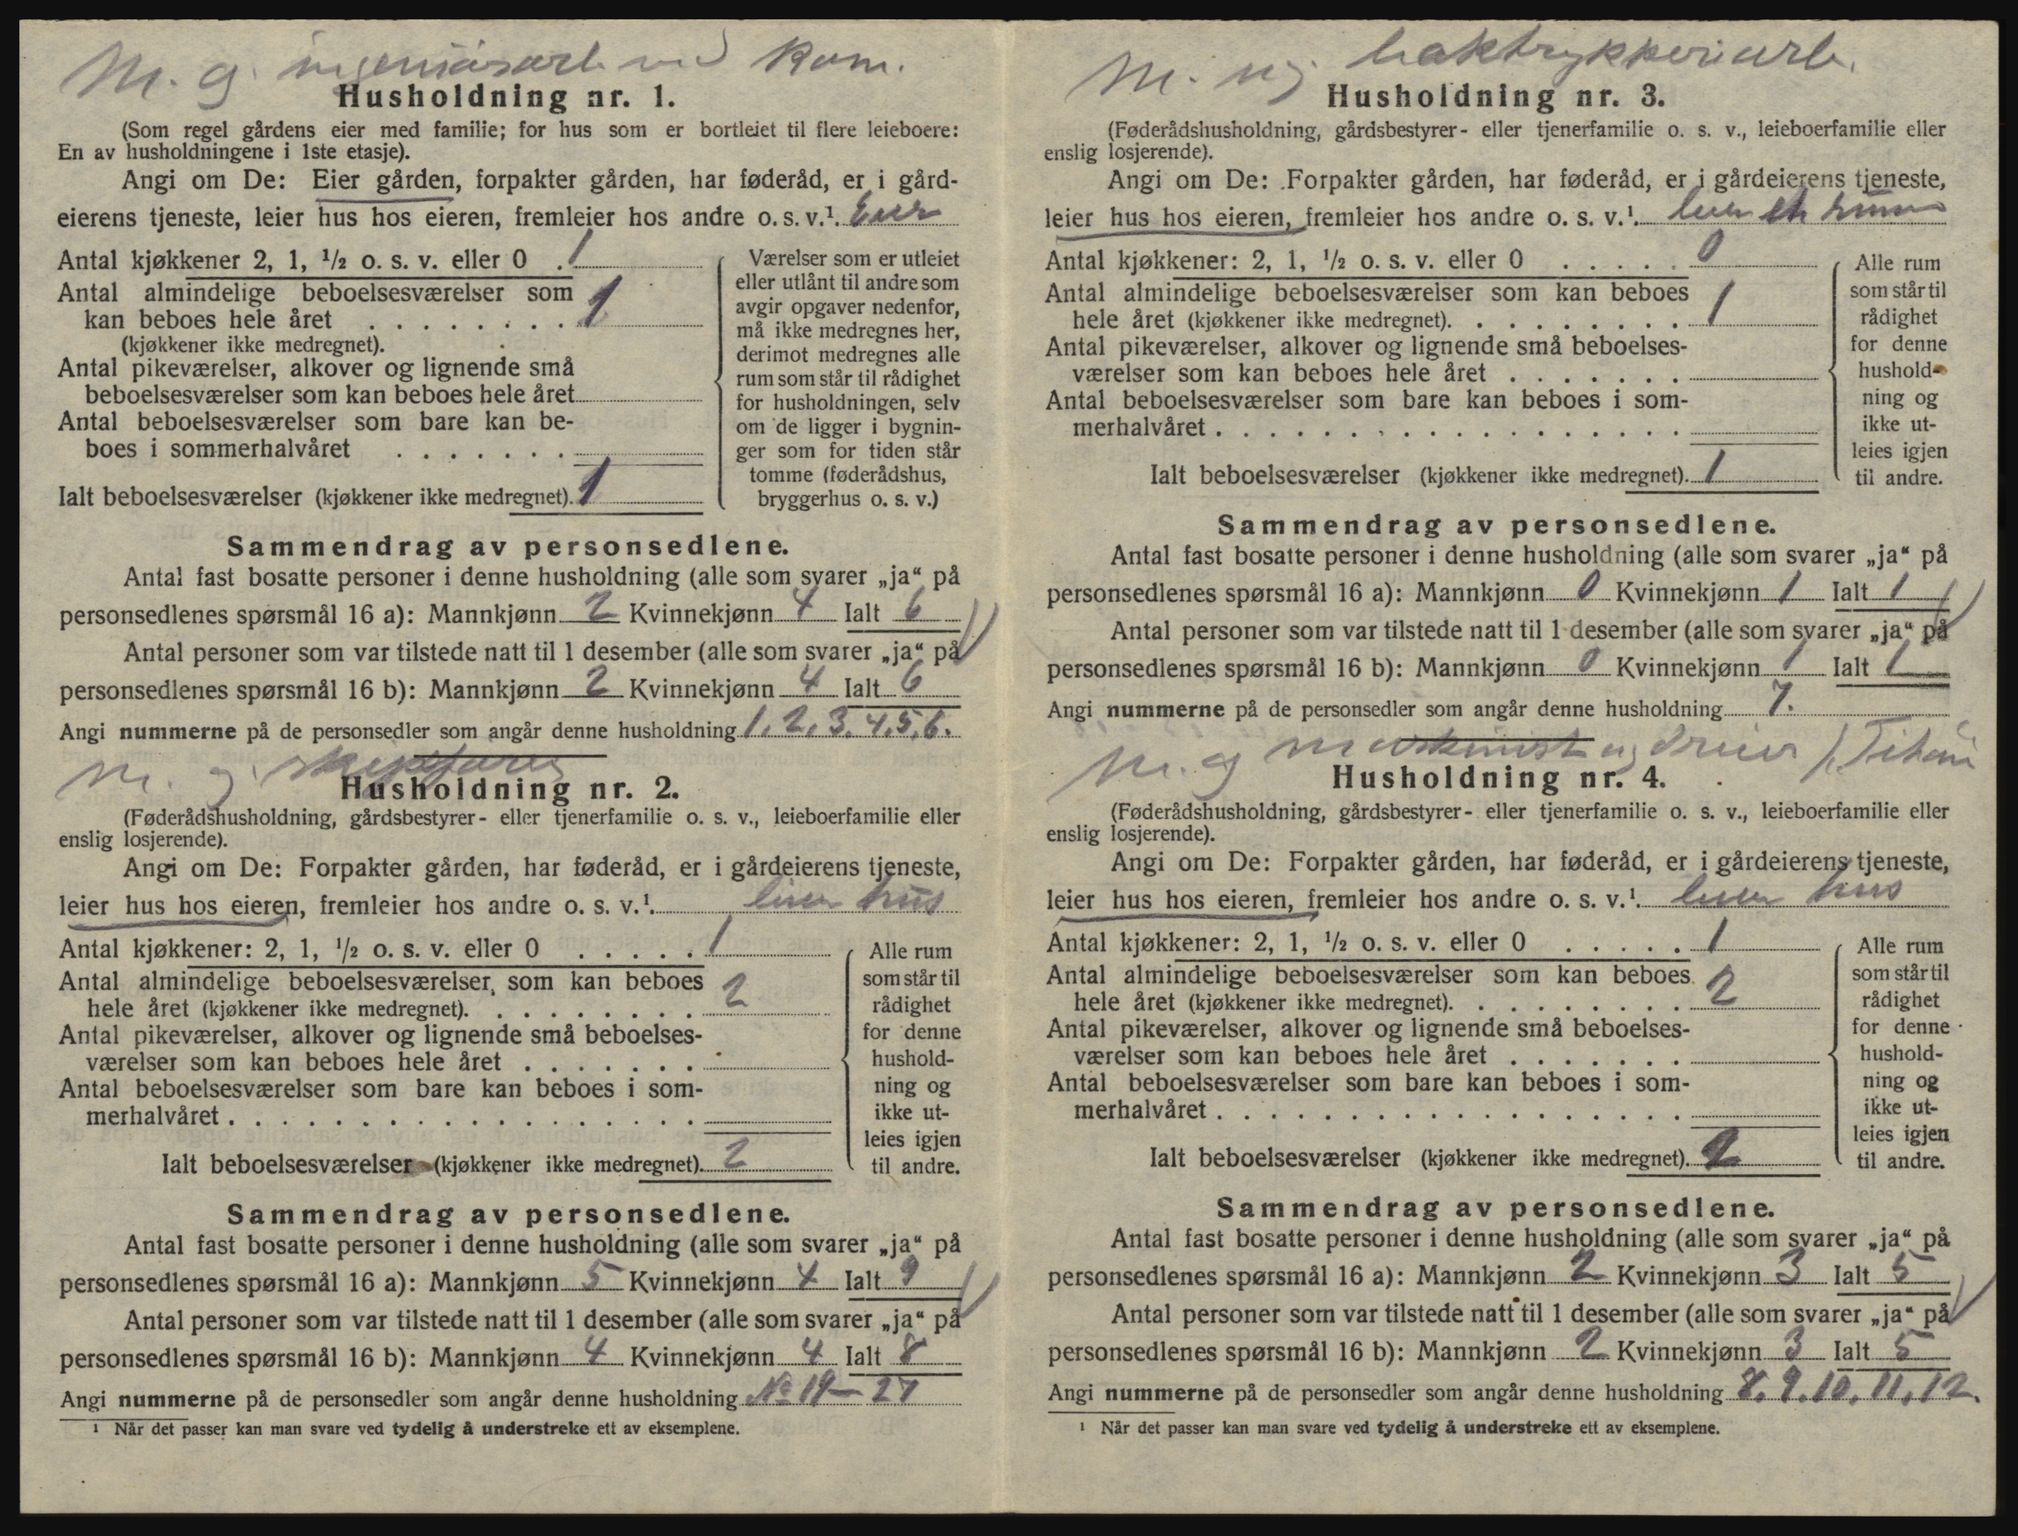 M. g. ingeniørarb. ved Kom.
Husholdning nr. 1.
(Som regel gårdens eier med familie; for hus som er bortleiet til flere leieboere:
En av husholdningene i 1ste etasje).
Angi om De: Eier gården, forpakter gården, har føderåd, er i gård-
eierens tjeneste, leier hus hos eieren, fremleier hos andre o. s. v.¹. Eier
Antal kjøkkener 2, 1, ½ o. s. v. eller 0 . 1
Antal almindelige beboelsesværelser som
kan beboes hele året . . . . . . . . 1
(kjøkkener ikke medregnet).
Antal pikeværelser, alkover og lignende små
beboelsesværelser som kan beboes hele året
Antal beboelsesværelser som bare kan be-
boes i sommerhalvåret . . . . . . .
Ialt beboelsesværelser (kjøkkener ikke medregnet). 1
Værelser som er utleiet
eller utlånt til andre som
avgir opgaver nedenfor,
må ikke medregnes her,
derimot medregnes alle
rum som står til rådighet
for husholdningen, selv
om de ligger i bygnin-
ger som for tiden står
tomme (føderådshus,
bryggerhus o. s. v.)
Sammendrag av personsedlene.
Antal fast bosatte personer i denne husholdning (alle som svarer „ja“ på
personsedlenes spørsmål 16 a): Mannkjønn 2 Kvinnekjønn 4 Ialt 6
Antal personer som var tilstede natt til 1 desember (alle som svarer „ja“ på
personsedlenes spørsmål 16 b): Mannkjønn 2 Kvinnekjønn 4 Ialt 6
Angi nummerne på de personsedler som angår denne husholdning 1, 2, 3, 4, 5, 6.
M. g.
Husholdning nr. 2.
(Føderådshusholdning, gårdsbestyrer- eller tjenerfamilie o. s. v., leieboerfamilie eller
enslig losjerende).
Angi om De: Forpakter gården, har føderåd, er i gårdeierens tjeneste,
leier hus hos eieren, fremleier hos andre o. s. v.¹. leier hus
Antal kjøkkener: 2, 1, ½ o. s. v. eller 0 . . . . . 1
Antal almindelige beboelsesværelser som kan beboes
hele året (kjøkkener ikke medregnet). . . . . . . . . 2
Antal pikeværelser, alkover og lignende små beboelses-
værelser som kan beboes hele året . . . . . . .
Antal beboelsesværelser som bare kan beboes i som-
merhalvåret . . . . . . . . . . . . . . . . . .
Ialt beboelsesværelser (kjøkkener ikke medregnet). 2
Alle rum
som står til
rådighet
for denne
hushold-
ning og
ikke ut-
leies igjen
til andre.
Sammendrag av personsedlene.
Antal fast bosatte personer i denne husholdning (alle som svarer „ja“ på
personsedlenes spørsmål 16 a): Mannkjønn 5 Kvinnekjønn 4 Ialt 9
Antal personer som var tilstede natt til 1 desember (alle som svarer „ja“ på
personsedlenes spørsmål 16 b): Mannkjønn 4 Kvinnekjønn 4 Ialt 8
Angi nummerne på de personsedler som angår denne husholdning No 19 – 27
¹ Når det passer kan man svare ved tydelig å understreke ett av eksemplene.
M. ug. boktrykkeriarb.
Husholdning nr. 3.
(Føderådshusholdning, gårdsbestyrer- eller tjenerfamilie o. s. v., leieboerfamilie eller
enslig losjerende).
Angi om De: Forpakter gården, har føderåd, er i gårdeierens tjeneste,
leier hus hos eieren, fremleier hos andre o. s. v.¹. leier
Antal kjøkkener: 2, 1, ½ o. s. v. eller 0 . . . . . 0
Antal almindelige beboelsesværelser som kan beboes
hele året (kjøkkener ikke medregnet). . . . . . . . . 1
Antal pikeværelser, alkover og lignende små beboelses-
værelser som kan beboes hele året . . . . . . .
Antal beboelsesværelser som bare kan beboes i som-
merhalvåret . . . . . . . . . . . . . . . . . .
Ialt beboelsesværelser (kjøkkener ikke medregnet). 1
Alle rum
som står til
rådighet
for denne
hushold-
ning og
ikke ut-
leies igjen
til andre.
Sammendrag av personsedlene.
Antal fast bosatte personer i denne husholdning (alle som svarer „ja“ på
personsedlenes spørsmål 16 a): Mannkjønn 0 Kvinnekjønn 1 Ialt 1
Antal personer som var tilstede natt til 1 desember (alle som svarer „ja“ på
personsedlenes spørsmål 16 b): Mannkjønn 0 Kvinnekjønn 1 Ialt 1
Angi nummerne på de personsedler som angår denne husholdning 7.
M. g maskinist og dreier Titan
Husholdning nr. 4.
(Føderådshusholdning, gårdsbestyrer- eller tjenerfamilie o. s. v., leieboerfamilie eller
enslig losjerende).
Angi om De: Forpakter gården, har føderåd, er i gårdeierens tjeneste,
leier hus hos eieren, fremleier hos andre o. s. v.¹. leier hus
Antal kjøkkener: 2, 1, ½ o. s. v. eller 0 . . . . . 1
Antal almindelige beboelsesværelser som kan beboes
hele året (kjøkkener ikke medregnet). . . . . . . . . 2
Antal pikeværelser, alkover og lignende små beboelses-
værelser som kan beboes hele året . . . . . . .
Antal beboelsesværelser som bare kan beboes i som-
merhalvåret . . . . . . . . . . . . . . . . . .
Ialt beboelsesværelser (kjøkkener ikke medregnet). 2
Alle rum
som står til
rådighet
for denne
hushold-
ning og
ikke ut-
leies igjen
til andre.
Sammendrag av personsedlene.
Antal fast bosatte personer i denne husholdning (alle som svarer „ja“ på
personsedlenes spørsmål 16 a): Mannkjønn 2 Kvinnekjønn 3 Ialt 5
Antal personer som var tilstede natt til 1 desember (alle som svarer „ja“ på
personsedlenes spørsmål 16 b): Mannkjønn 2 Kvinnekjønn 3 Ialt 5
Angi nummerne på de personsedler som angår denne husholdning 8, 9, 10, 11, 12.
¹ Når det passer kan man svare ved tydelig å understreke ett av eksemplene.